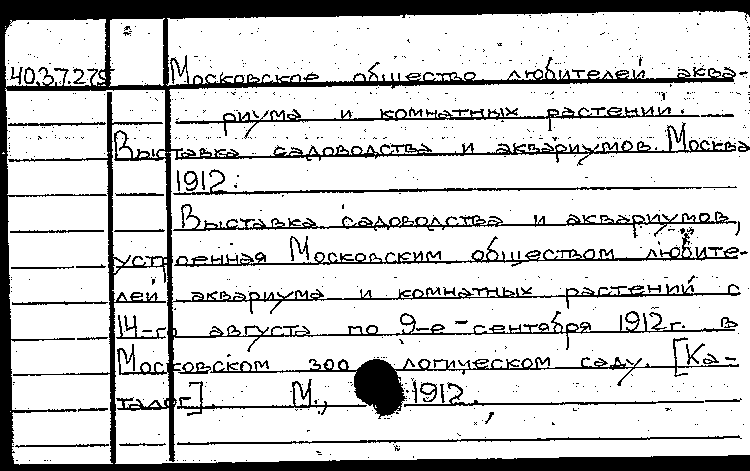 40.37.275 Московское общество любителей аква-
риума и комнатных растений.
Выставка садоводства и аквариумов. Москва
1912.
Выставка садоводства и аквариумов,
устроенная Московским обществом любите-
лей аквариума и комнатных растений с
14-го августа по 9-е сентября 1912г. в
Московском зоологическом саду. [Ка-
талог]. М., 1912.